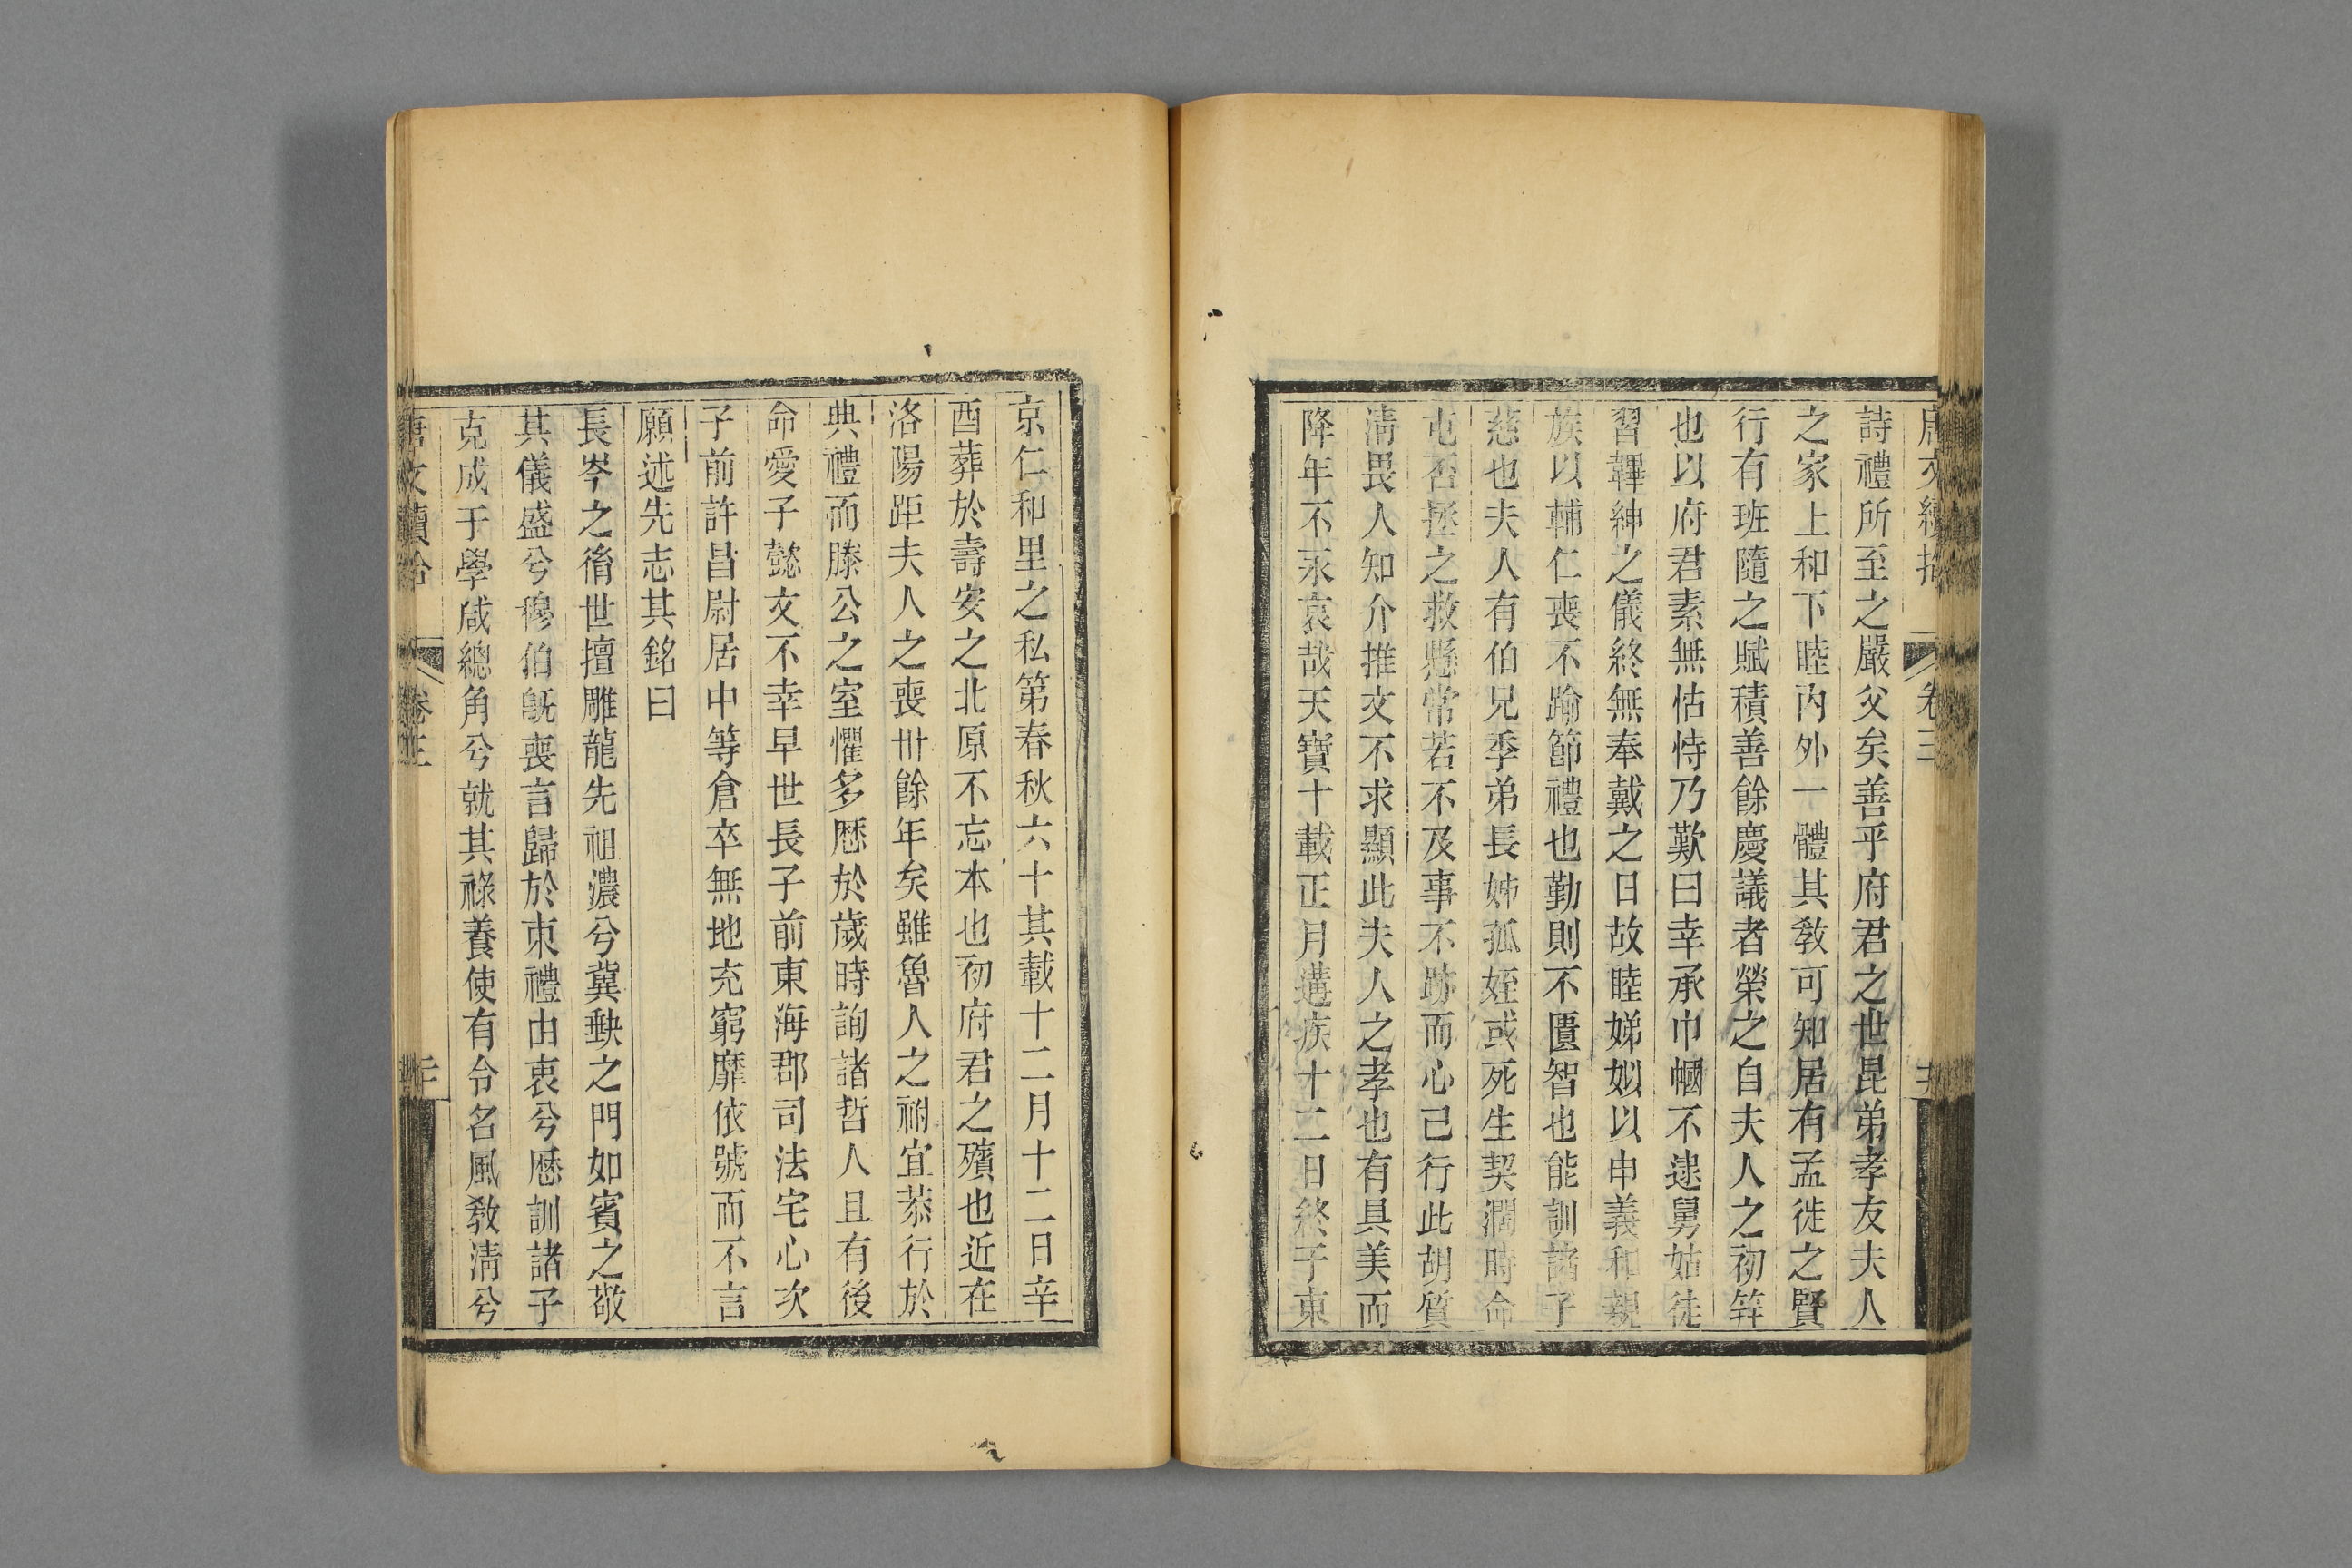 詩禮所至之嚴父矣善乎府君之世昆弟孝友夫人
之家上和下睦內外一體其敎可知居有孟徙之賢
行有班隨之賦積善餘慶議者榮之自夫人之初筓
也以府君素無怙恃乃歎曰幸承巾幗不逮舅姑徒
習鞸紳之儀終無奉戴之日故睦娣姒以申義和親
族以輔仁喪不踰節禮也勤則不匱智也能訓諸子
慈也夫人有伯兄季弟長姊孤姪或死生契濶時命
屯否拯之救懸常若不及事不跡而心己行此胡質
淸畏人知介推文不求顯此夫人之孝也有具美而
降年不永哀哉天寶十載正月遘疾十二日終于東
京仁和里之私第春秋六十其載十二月十二日辛
酉葬於壽安之北原不忘本也初府君之殯也近在
洛陽距夫人之喪卅餘年矣雖魯人之祔宜恭行於
典禮而滕公之室懼多歷於歲時詢諸哲人且有後
命愛子懿文不幸早世長子前東海郡司法宅心次
子前許昌尉居中等倉卒無地充窮靡依號而不言
願述先志其銘曰
長岑之後世擅雕龍先祖濃兮冀缺之門如賓之敬
其儀盛兮穆伯旣喪言歸於東禮由衷兮歷訓諸子
克成于學咸總角兮就其祿養使有令名風敎淸兮
唐文續拾
卷三